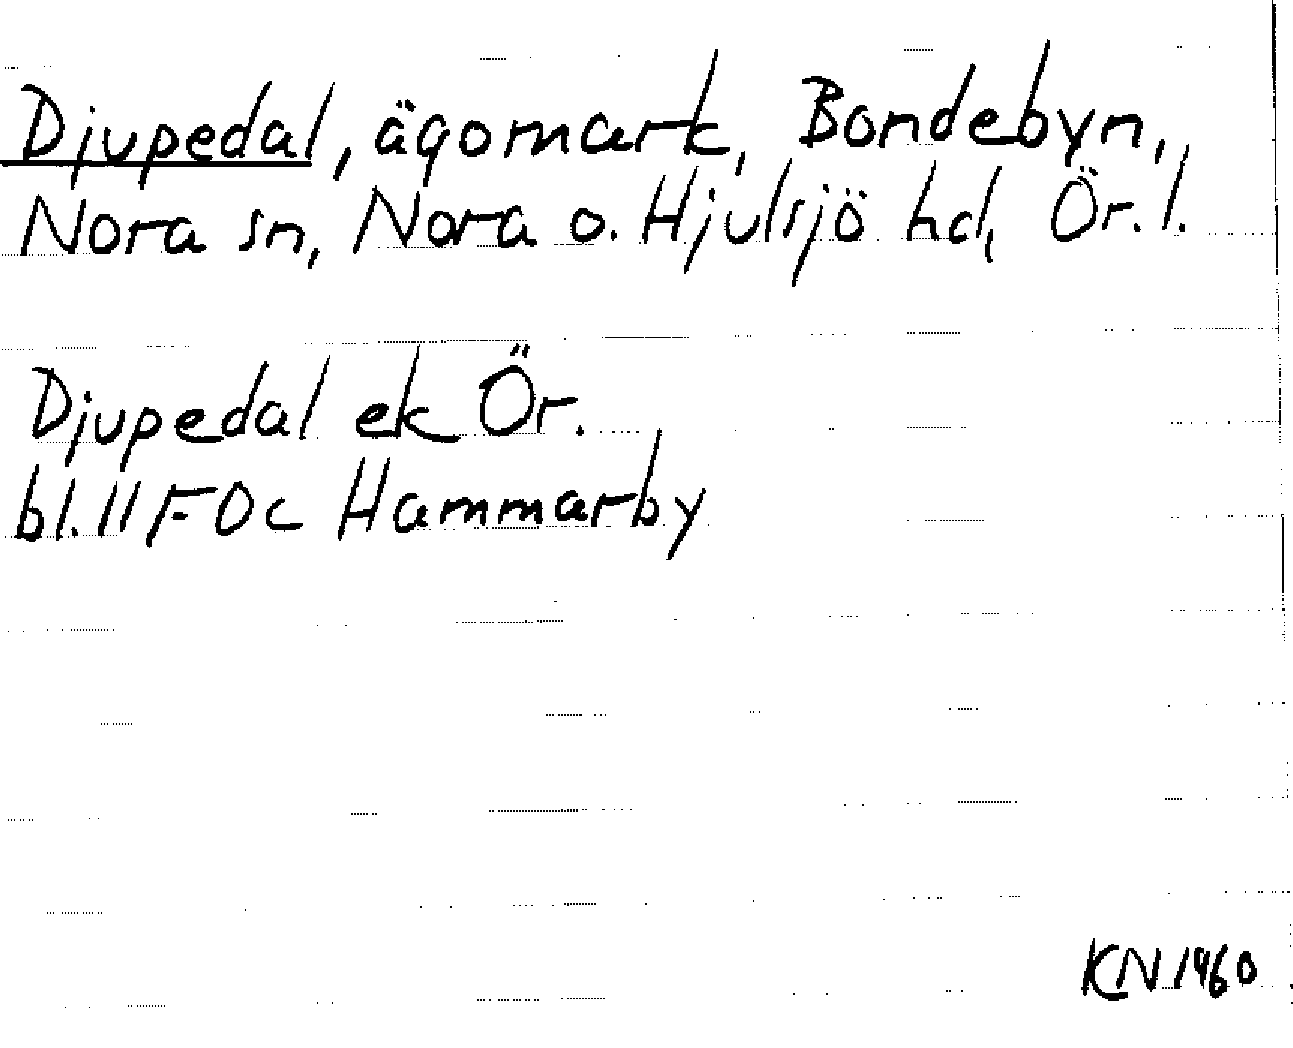 Djupedal, ägomark, Bondebyn,
Nora sn, Nora o. Hjulsjö hd, Ör. l.
Djupedal ek Ör.
bl. 11 F 0c Hammarby
KN 1960